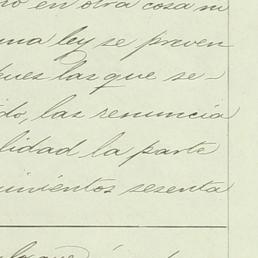 no en otra cosa ni
una ley se preven
pues las que se-
do, las renuncia
lidad la parte
uinientos sesenta